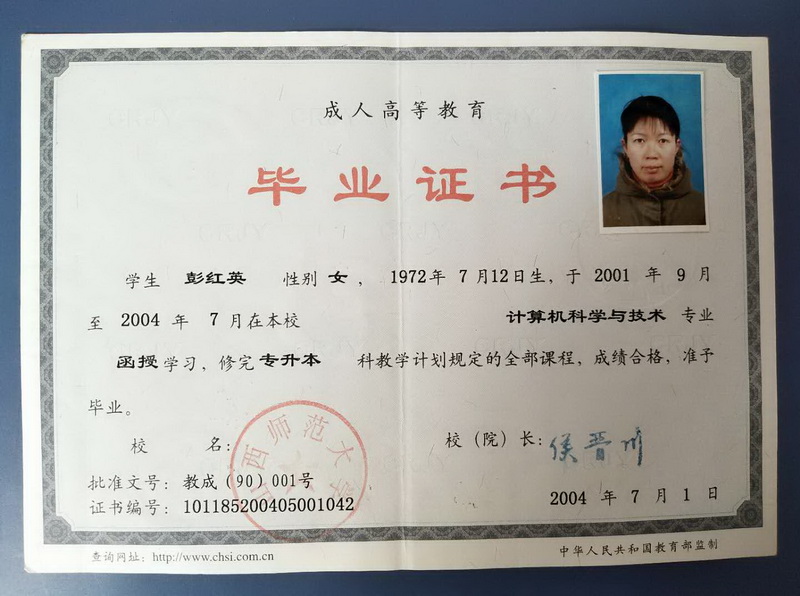 成人高等教育
毕业证书
学生 彭红英 性别 女 ， 1972年 7 月12日生，于 2001 年 9 月
至 2004 年 7 月在本校 计算机科学与技术 专业
函授 学习，修完 专升本 科教学计划规定的全部课程，成绩合格，准予
毕业。
校 名：
山西师范大学
校（院）长：侯晋川
批准文号：教成（90）001号
证书编号：101185200405001042
2004 年 7 月 1 日
查询网址：http://www.chsi.com.cn
中华人民共和国教育部监制